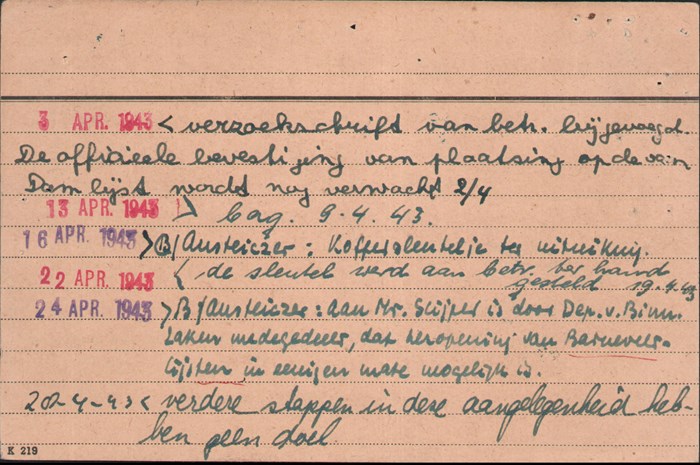 3 APR. 1943 < verzoekschrift van betr. bijgevoegd.
De officieele bevestiging van plaatsing op de van
Dam lijst wordt nog verwacht 2/4
13 APR. 1943 > 9.4.43.
16 APR. 1943 > B/Austeiczer: Koffersleuteltje ter uitreiking.
22 APR. 1943 < de sleutel werd aan betr. ter hand
gesteld 19.4.43
24 APR. 1943 > B/Austeiczer: aan Mr. Slijper is door Dep. v. Binn.
Zaken medegedeeld, dat heropening van Barneveld-
lijsten in eenigen mate mogelijk is.
4-43 < verdere stappen in deze aangelegenheid heb-
ben geen doel
K 219